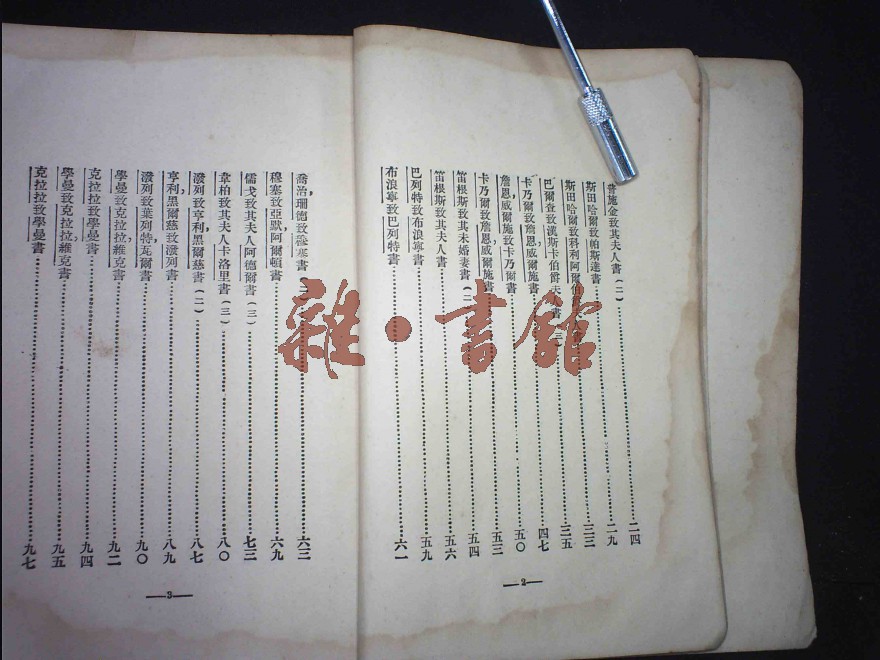 普施金致其夫人書(二)……二四
斯田哈爾致帕斯達書……二九
斯田哈爾致科利阿爾伯……三三
巴爾查致漢斯卡伯爵夫人書(三)……三五
卡乃爾致詹恩威爾施書……四七
詹恩,威爾施致卡乃爾書……五〇
卡乃爾致詹恩,威爾施書……五三
笛根斯致其未婚妻書(二)……五四
笛根斯致其夫人書……五六
巴列特致布浪寧書……五九
布浪寧致巴列特書……六一
—2—
喬治,珊德致穆塞書(二)……六三
穆塞致亞默,阿爾頓書……六九
儒戈致其夫人阿德爾書(三)……七三
韋柏致其夫人卡洛里書(三)……八〇
潑列致亨利,黑爾慈書(二)……八七
亨利,黑爾慈致潑列書……八九
潑列致葉列特,瓦爾書……九〇
學曼致克拉拉,維克書……九二
克拉拉致學曼書……九四
學曼致克拉拉維克書……九五
克拉拉致學曼書……九七
—3—
雜·書館